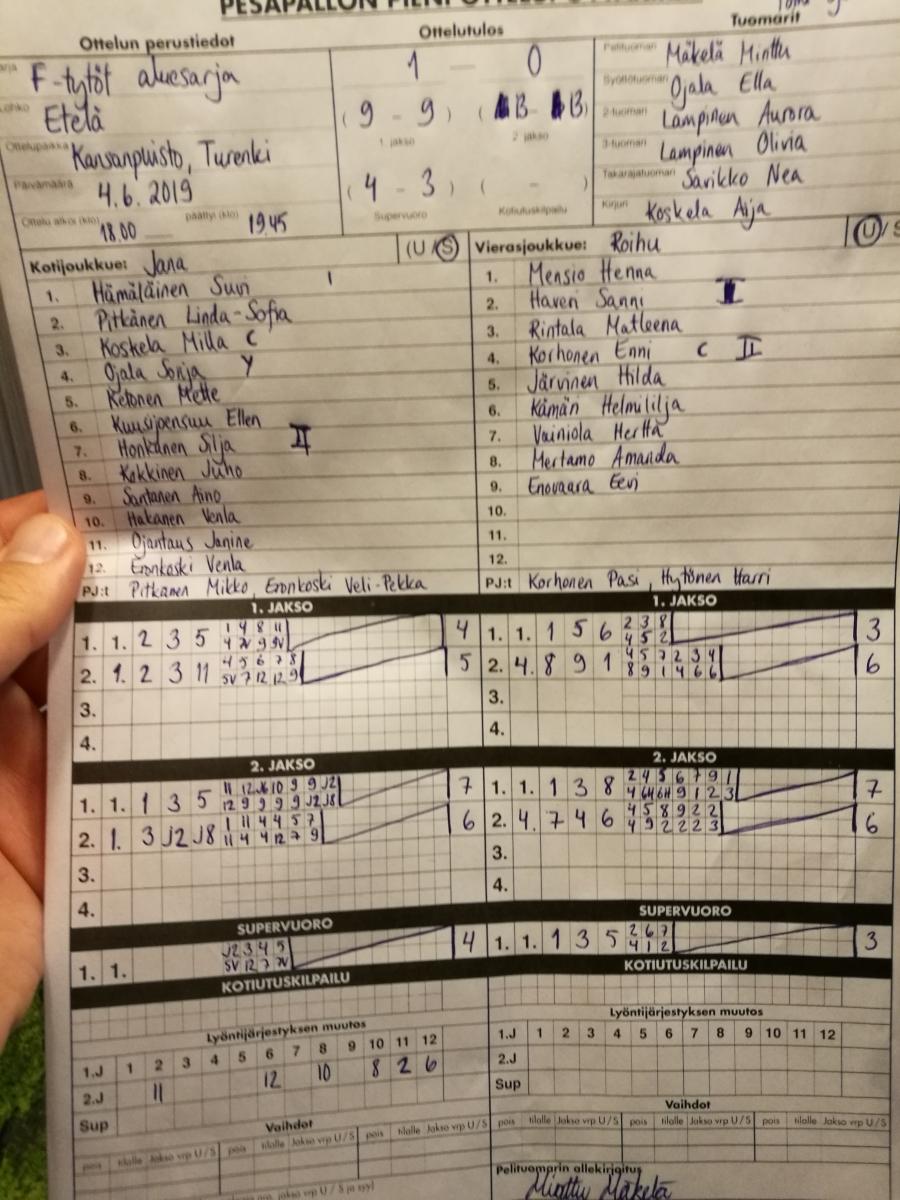 PESÄPALLON PIENI OTTELUPÖYTÄKIRJA
Ottelun perustiedot
F-tytöt aluesarja
Lohko
Etelä
Ottelupaikka
Kansanpuisto, Turenki
Päivämäärä
4.6.2019
Ottelu alkoi (klo) päättyi (klo)
18.00 — 19.45
Ottelutulos
1 — 0
( 9 - 9 ) ( 13 - 13 )
1. jakso 2. jakso
( 4 - 3 ) ( - )
Supervuoro Kotiutuskilpailu
Tuomarit
Pelituomari Mäkelä Minttu
Syöttötuomari Ojala Ella
2-tuomari Lampinen Aurora
3-tuomari Lampinen Olivia
Takarajatuomari Sarikko Nea
Kirjuri Koskela Aija
Kotijoukkue: Jana (U/S)
1. Hämäläinen Suvi I
2. Pitkänen Linda-Sofia
3. Koskela Milla C
4. Ojala Sonja Y
5. Ketonen Mette
6. Kuusijoensuu Ellen
7. Honkanen Silja II
8. Kokkinen Juho
9. Santanen Aino
10. Hakanen Venla
11. Ojantaus Janine
12. Eronkoski Venla
PJ:t Pitkänen Mikko, Eronkoski Veli-Pekka
Vierasjoukkue: Roihu (U/S
1. Mensio Henna
2. Haveri Sanni I
3. Rintala Matleena
4. Korhonen Enni C II
5. Järvinen Hilda
6. Kämäri Helmililja
7. Vainiola Hertta
8. Mertamo Amanda
9. Enovaara Eevi
10.
11.
12.
PJ:t Korhonen Pasi, Hytönen Harri
1. JAKSO
1. 1. 2 3 5 1 4 8 11 4
4 2V 9 9V
2. 1. 2 3 11 4 5 6 7 8 5
5V 7 12 12 9
3.
4.
2. JAKSO
1. 1. 1 3 5 11 12 J6 10 9 9 J2 7
12 9 9 9 9 J2 J8
2. 1. 3 J2 J8 1 11 4 4 5 7 6
11 4 4 12 7 9
3.
4.
SUPERVUORO
1. 1. J2 3 4 5 4
5V 12 7 7V
KOTIUTUSKILPAILU
Lyöntijärjestyksen muutos
1.J 1 2 3 4 5 6 7 8 9 10 11 12
2.J 11 12 10 8 2 6
Sup
Vaihdot
pois tilalle Jakso vrp U/S pois tilalle Jakso vrp U/S pois tilalle Jakso vrp U/S
1. JAKSO
1. 1. 1 5 6 2 3 8 3
4 5 2
2. 4. 8 9 1 4 5 7 2 3 4 6
8 9 1 4 6 6
3.
4.
2. JAKSO
1. 1. 1 3 8 2 4 5 6 7 9 1 7
4 6H 6H 9 1 2 3
2. 4. 7 4 6 4 5 8 9 2 2 6
4 9 2 2 2 3
3.
4.
SUPERVUORO
1. 1. 1 3 5 2 6 7 3
4 1 2
KOTIUTUSKILPAILU
Lyöntijärjestyksen muutos
1.J 1 2 3 4 5 6 7 8 9 10 11 12
2.J
Sup
Vaihdot
pois tilalle Jakso vrp U/S pois tilalle Jakso vrp U/S pois tilalle Jakso vrp U/S
Pelituomarin allekirjoitus
Minttu Mäkelä